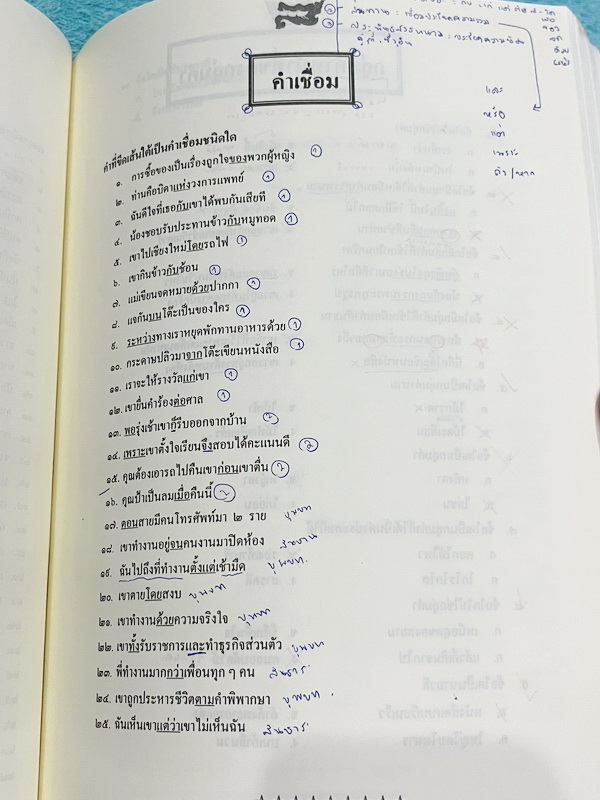 คำเชื่อม
และ
หรือ
แต่
เพราะ
ถ้า/หาก
คำที่ขีดเส้นใต้เป็นคำเชื่อมชนิดใด
๑. การซื้อของเป็นเรื่องถูกใจของพวกผู้หญิง ①
๒. ท่านคือบิดาแห่งวงการแพทย์ ①
๓. ฉันดีใจที่เธอกับเขาได้พบกันเสียที ①
๔. น้องชอบรับประทานข้าวกับหมูทอด ①
๕. เขาไปเชียงใหม่โดยรถไฟ ①
๖. เขากินข้าวกับช้อน ①
๗. แม่เขียนจดหมายด้วยปากกา ①
๘. แจกันบนโต๊ะเป็นของใคร ①
๙. ระหว่างทางเราหยุดพักทานอาหารด้วย ①
๑๐. กระดาษปลิวมาจากโต๊ะเขียนหนังสือ ①
๑๑. เราจะให้รางวัลแก่เขา ①
๑๒. เขายื่นคำร้องต่อศาล ①
๑๓. พอรุ่งเช้าเขาก็รีบออกจากบ้าน ②
๑๔. เพราะเขาตั้งใจเรียนจึงสอบได้คะแนนดี ②
๑๕. คุณต้องเอารถไปคืนเขาก่อนเขาตื่น ②
๑๖. คุณป้าเป็นลมเมื่อคืนนี้ ②
๑๗. ตอนสายมีคนโทรศัพท์มา ๒ ราย บุพบท
๑๘. เขาทำงานอยู่จนคนงานมาปิดห้อง สันธาน
๑๙. ฉันไปถึงที่ทำงานตั้งแต่เช้ามืด บุพบท
๒๐. เขาตายโดยสงบ บุพบท
๒๑. เขาทำงานด้วยความจริงใจ บุพบท
๒๒. เขาทั้งรับราชการและทำธุรกิจส่วนตัว บุพบท
๒๓. พี่ทำงานมากกว่าเพื่อนทุก ๆ คน
๒๔. เขาถูกประหารชีวิตตามคำพิพากษา บุพบท
๒๕. ฉันเห็นเขาแต่ว่าเขาไม่เห็นฉัน